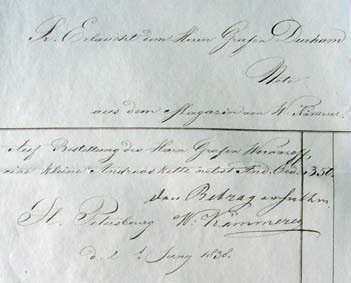 Sr. Erlaucht dem Herrn Grafen Durham
Nota
aus dem Magazin von W. Kämmerer
Auf Bestellung des Herrn Grafen
eine kleine Andreaskette nebst And. Ord. 1350.
den Betrag erhalten.
St. Petersburg W. Kämmerer
d. 2 t Juny 1836.